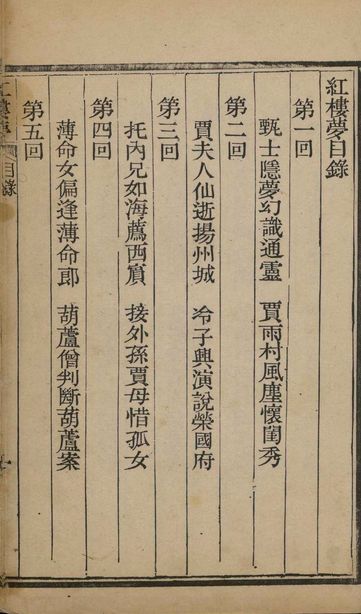 紅樓夢目錄
第一回
甄士隱夢幻識通靈 賈雨村風塵懷閨秀
第二回
賈夫人仙逝揚州城 冷子興演說榮國府
第三回
托內兄如海薦西賔 接外孫賈母惜孤女
第四回
薄命女偏逢薄命郎 葫蘆僧判斷葫蘆案
第五回
目錄